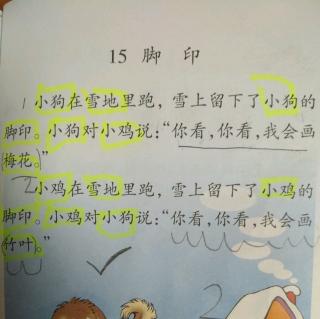 15 脚 印
1 小狗在雪地里跑，雪上留下了小狗的
脚印。小狗对小鸡说：“你看，你看，我会画
梅花。”
2 小鸡在雪地里跑，雪上留下了小鸡的
脚印。小鸡对小狗说：“你看，你看，我会画
竹叶。”
2